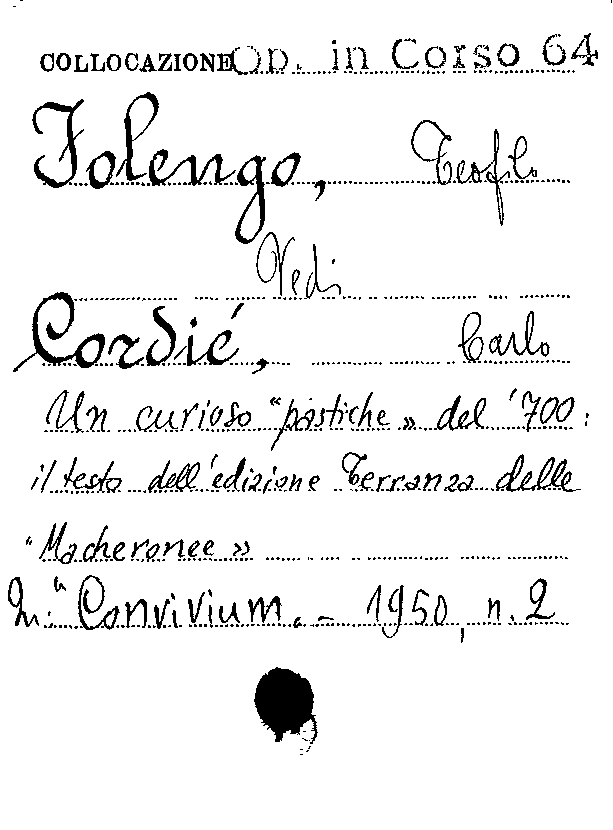 COLLOCAZIONE Op. in Corso 64
Folengo, Teofilo
Vedi
Cordié, Carlo
Un curioso "pastiche» del '700:
il testo dell'edizione Terranza delle
"Macheronee»
In: "Convivium. - 1950, n. 2